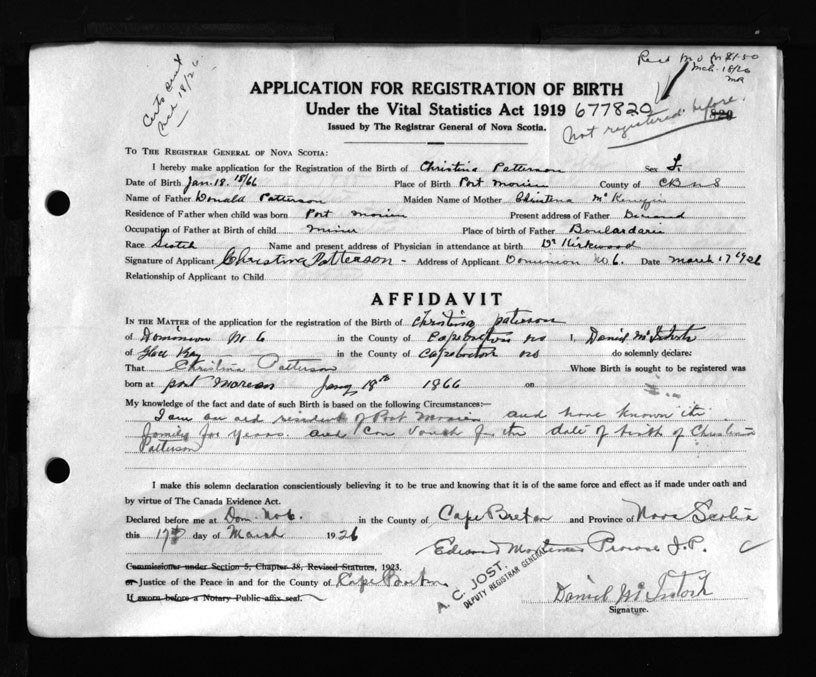 Certs sent
Mch 18/26
Mch 18/26
APPLICATION FOR REGISTRATION OF BIRTH
Under the Vital Statistics Act 1919 677820
Issued by The Registrar General of Nova Scotia.
Not registered before.
To The Registrar General of Nova Scotia:
I hereby make application for the Registration of the Birth of Christina Patterson Sex F.
Date of Birth Jan. 18. 18/66 Place of Birth Port Morien County of C B N S
Name of Father Donald Patterson Maiden Name of Mother Christena
Residence of Father when child was born Port Morien Present address of Father Deceased
Occupation of Father at Birth of child miner Place of birth of Father Boulardarie
Race Scotch Name and present address of Physician in attendance at birth Dr Kirkwood
Signature of Applicant Christina Patterson - Address of Applicant Dominion No 6. Date March 17 1926
Relationship of Applicant to Child
AFFIDAVIT
In the Matter of the application for the registration of the Birth of Christina Paterson
of Dominion No 6 in the County of Cape Breton NS I, Daniel McIntosh
of Glace Bay in the County of Cape Breton NS do solemnly declare:
That Christina Patterson Whose Birth is sought to be registered was
born at Port Morien Jany 18th 1866 on
My knowledge of the fact and date of such Birth is based on the following Circumstances:—
I am an old resident of Port Morien and have known the
family for years. and can vouch for the date of birth of Christina
Patterson
I make this solemn declaration conscientiously believing it to be true and knowing that it is of the same force and effect as if made under oath and
by virtue of The Canada Evidence Act.
Declared before me at Dom. No 6. in the County of Cape Breton and Province of Nova Scotia
this 17th day of March 1926
J.P.
Commissioner under Section 5, Chapter 38, Revised Statutes, 1923.
or Justice of the Peace in and for the County of Cape Breton
If sworn before a Notary Public affix seal.
A. C. JOST.
DEPUTY REGISTRAR GENERAL
Daniel McIntosh
Signature.